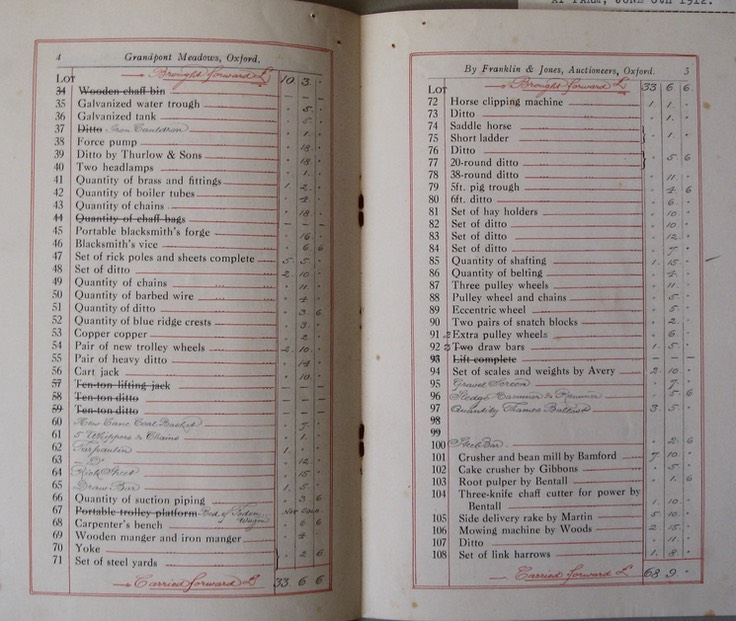 AT FARM, JUNE 6TH 1912.
4 Grandpont Meadows, Oxford.
Lot Brought forward £ 10 . 3 . -
34 Wooden chaff bin - -
35 Galvanized water trough . 5 .
36 Galvanized tank . 5 .
37 Ditto Iron Cauldron . 1 .
38 Force pump . 18 .
39 Ditto by Thurlow & Sons . 18 .
40 Two headlamps . 1 .
41 Quantity of brass and fittings 1 . 2 .
42 Quantity of boiler tubes . 4 .
43 Quantity of chains . 18 .
44 Quantity of chaff bags - - -
45 Portable blacksmith's forge . 16 .
46 Blacksmith's vice . 6 6
47 Set of rick poles and sheets complete 5 . 5 .
48 Set of ditto 2 . 10 .
49 Quantity of chains . 11 .
50 Quantity of barbed wire . 4 .
51 Quantity of ditto . 3 6
52 Quantity of blue ridge crests . 3 .
53 Copper copper . 2 .
54 Pair of new trolley wheels 2 . 10 .
55 Pair of heavy ditto . 14 .
56 Cart jack . 10 .
57 Ten-ton lifting jack - - -
58 Ten-ton ditto - - -
59 Ten-ton ditto - - -
60 New Cane Coal Basket . 7 .
61 5 Whippers & Chains . 1 .
62 Tarpaulin 1 . .
63 - Do . 12 .
64 Rick Sheet . 15 .
65 Draw Bar 1 . 5 .
66 Quantity of suction piping . 3 6
67 Portable trolley platform Bed of Wagon
68 Carpenter's bench . 6 6
69 Wooden manger and iron manger . 4 .
70 Yoke
71 Set of steel yards } . 2 6
Carried forward £ 33 . 6 . 6
By Franklin & Jones, Auctioneers, Oxford. 5
Lot Brought forward £ 33 6 6
72 Horse clipping machine 1 . 1 .
73 Ditto . 1 .
74 Saddle horse
75 Short ladder } . 1 .
76 Ditto
77 20-round ditto } . 5 6
78 38-round ditto . 11 .
79 5ft. pig trough . 4 6
80 6ft. ditto . 6 .
81 Set of hay holders . 10 .
82 Set of ditto . 10 .
83 Set of ditto . 12 .
84 Set of ditto . 7 .
85 Quantity of shafting 1 . 15 .
86 Quantity of belting . 4 .
87 Three pulley wheels . 11 .
88 Pulley wheel and chains . 5 .
89 Eccentric wheel . 5 .
90 Two pairs of snatch blocks . 2 .
91 2 Extra pulley wheels . 6 .
92 3 Two draw bars 1 . 5 .
93 Lift complete - - -
94 Set of scales and weights by Avery 2 10 .
95 Gravel Screen . 7 .
96 Sledge Hammer & Rammer . 5 6
97 Quantity Thames Ballast 3 . 5 .
98
99
100 Steel Bar . 2 6
101 Crusher and bean mill by Bamford 7 10 .
102 Cake crusher by Gibbons . 5 .
103 Root pulper by Bentall . 1 . 6
104 Three-knife chaff cutter for power by
Bentall 1 . 10 .
105 Side delivery rake by Martin 5 10 .
106 Mowing machine by Woods 2 . 15 .
107 Ditto . 11 .
108 Set of link harrows 1 . 8 .
Carried forward £ 68 9 .